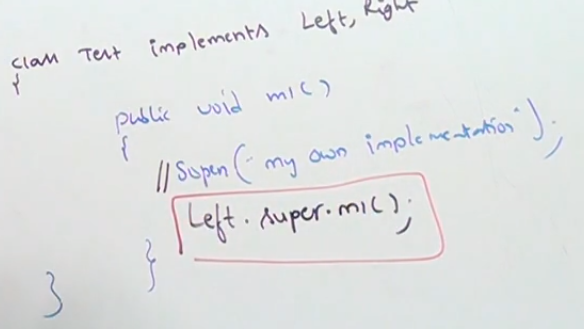 class Test implements Left, Right
{
public void m1()
{
//Sopln("my own implementation");
Left.super.m1();
}
}